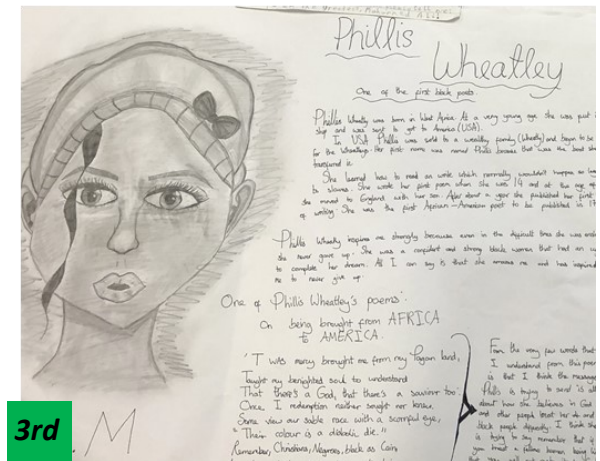 Phillis
Wheatley
One of the first black poets.
Phillis Wheatley was born in West Africa. At a very young age she was put
ship and was sent to get to America (USA).
In USA Phillis was sold to a wealthy family (Wheatly) and began to be
for the Wheatleys. Her first name was named Phillis because that was the boat she
transfered in.
She learned how to read an wrote which normally wouldn't happen
to slaves. She wrote her first poem when she was 14 and at the age of
she moved to England with her son. After about a year she published her first
of writing. She was the first African-American poet to be published in 17
Phillis Wheatly inspires me strongly because even in the difficult times she was
she never gave up. She was a confident and strong black women that had an
to complete her dream. All I can say is that she amazes me and has inspired
me to never give up.
One of Phillis Wheatley's poems:
On being brought from AFRICA
to AMERICA.
'T was mercy brought me from my Pagan land,
Taught my benighted soul to understand
That there's a God, that there's a saviour too:
Once I redemption neither sought nor knew,
Some view our sable race with a scornful eye,
"Their colour is a diabolic die."
Remember, Christians, Negroes, black as Cain
From the very few words that
I understand from this poem
is that I think the message
Phillis is trying to send is all
about how she believes in God
and other people treat her and
black people differently. I think she
is trying to say remember that if
you treat a fellow human being
3rd
.M